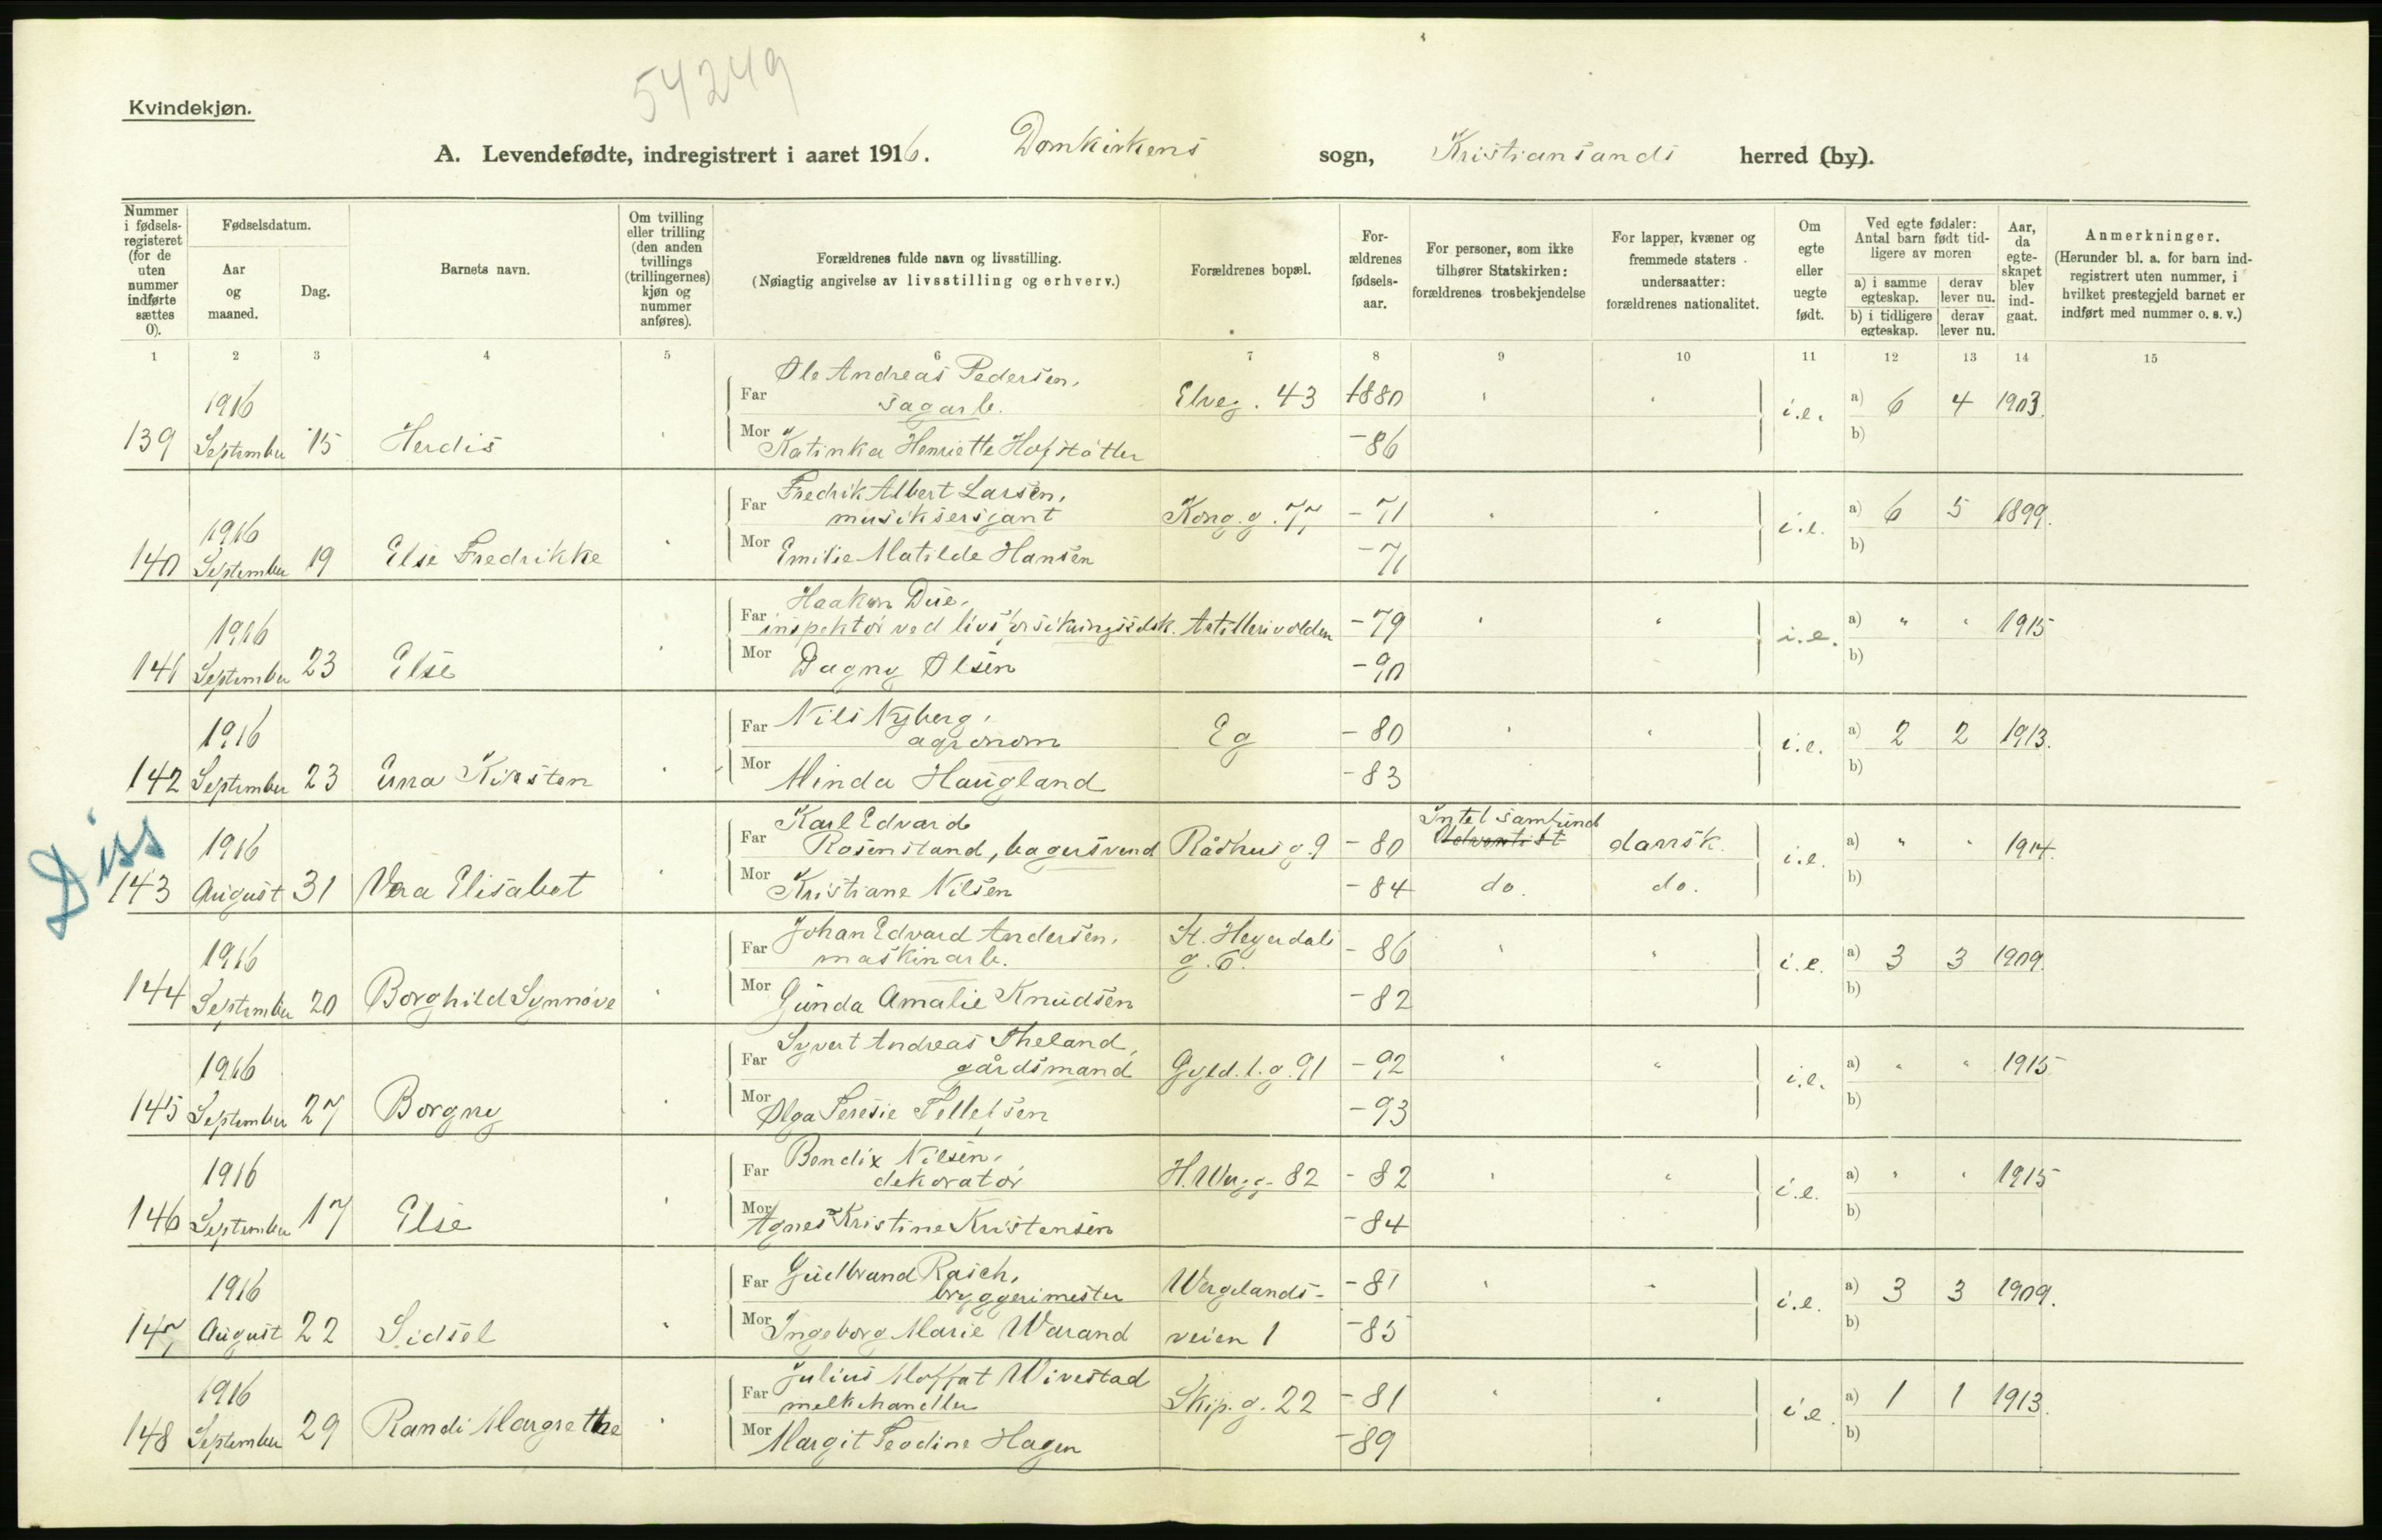 54249
Kvindekjøn.
A. Levendefødte, indregistrert i aaret 1916. Domkirkens sogn, Kristiansands herred (by).
Nummer i fødselsregisteret (for de uten nummer indførte sættes 0).
Fødselsdatum.
Aar og maaned.
Dag.
Barnets navn.
Om tvilling eller trilling (den anden tvillings (trillingernes) kjøn og nummer anføres).
Forældrenes fulde navn og livsstilling.
(Nøiagtig angivelse av livsstilling og erhverv.)
Forældrenes bopæl.
For-ældrenes fødsels-aar.
For personer, som ikke tilhører Statskirken: forældrenes trosbekjendelse
For lapper, kvæner og fremmede staters undersaatter: forældrenes nationalitet.
Om egte eller uegte født.
Ved egte fødsler: Antal barn født tid-ligere av moren
a) i samme egteskap. derav lever nu.
b) i tidligere egteskap. derav lever nu.
Aar, da egte-skapet blev ind-gaat.
Anmerkninger.
(Herunder bl. a. for barn ind-registrert uten nummer, i hvilket prestegjeld barnet er indført med nummer o. s. v.)
1 2 3 4 5 6 7 8 9 10 11 12 13 14 15
1916 Far Ole Andreas Pedersen, Sagarb. Elveg. 43 1880 i.e. a) 6 4 1903.
139 September 15 Herdis Mor Katinka Henriette Hofstätter -86 b)
1916 Far Fredrik Albert Larsen, musiksersjant Kong. g. 77 -71 i.e. a) 6 5 1899.
140 September 19 Else Fredrikke Mor Emilie Matilde Hansen -71 b)
1916 Far Haakon Due, inspektør ved livsforsikringsselsk. Artillerivolden -79 i.e. a) " " 1915
141 September 23 Else Mor Dagny Olsen -90 b)
1916 Far Nils Nyberg, agronom Eg -80 i.e. a) 2 2 1913.
142 September 23 Erna Kirsten Mor Minda Haugland -83 b)
Diss
1916 Far Karl Edvard Rosenstand, bagersvend Rådhusg. 9 -80 Intet samfund Adventist dansk. i.e. a) " " 1914.
143 August 31 Vera Elisabet Mor Kristiane Nilsen -84 do. do. b)
1916 Far Johan Edvard Andersen, maskinarb. St. Heyerdals g. 6. -86 i.e. a) 3 3 1909.
144 September 20 Borghild Synnøve Mor Gunda Amalie Knudsen -82 b)
1916 Far Syvert Andreas Theland, gårdsmand Gyld. l. g. 91 -92 i.e. a) " " 1915
145 September 27 Borgny Mor Olga Teresie Tellefsen -93 b)
1916 Far Bendix Nilsen, dekoratør H. Werg. g. 82 -82 i.e. a) " " 1915
146 September 17 Else Mor Agnes Kristine Kristensen -84 b)
1916 Far Gudbrand Rasch, bryggerimester Wergelands- -81 i.e. a) 3 3 1909.
147 August 22 Sidsel Mor Ingeborg Marie Warand veien 1 -85 b)
1916 Far Julius Moffat Wivestad melkehandler Skip. g. 22 -81 i.e. a) 1 1 1913.
148 September 29 Randi Margrethe Mor Margit Teodine Hagen -89 b)